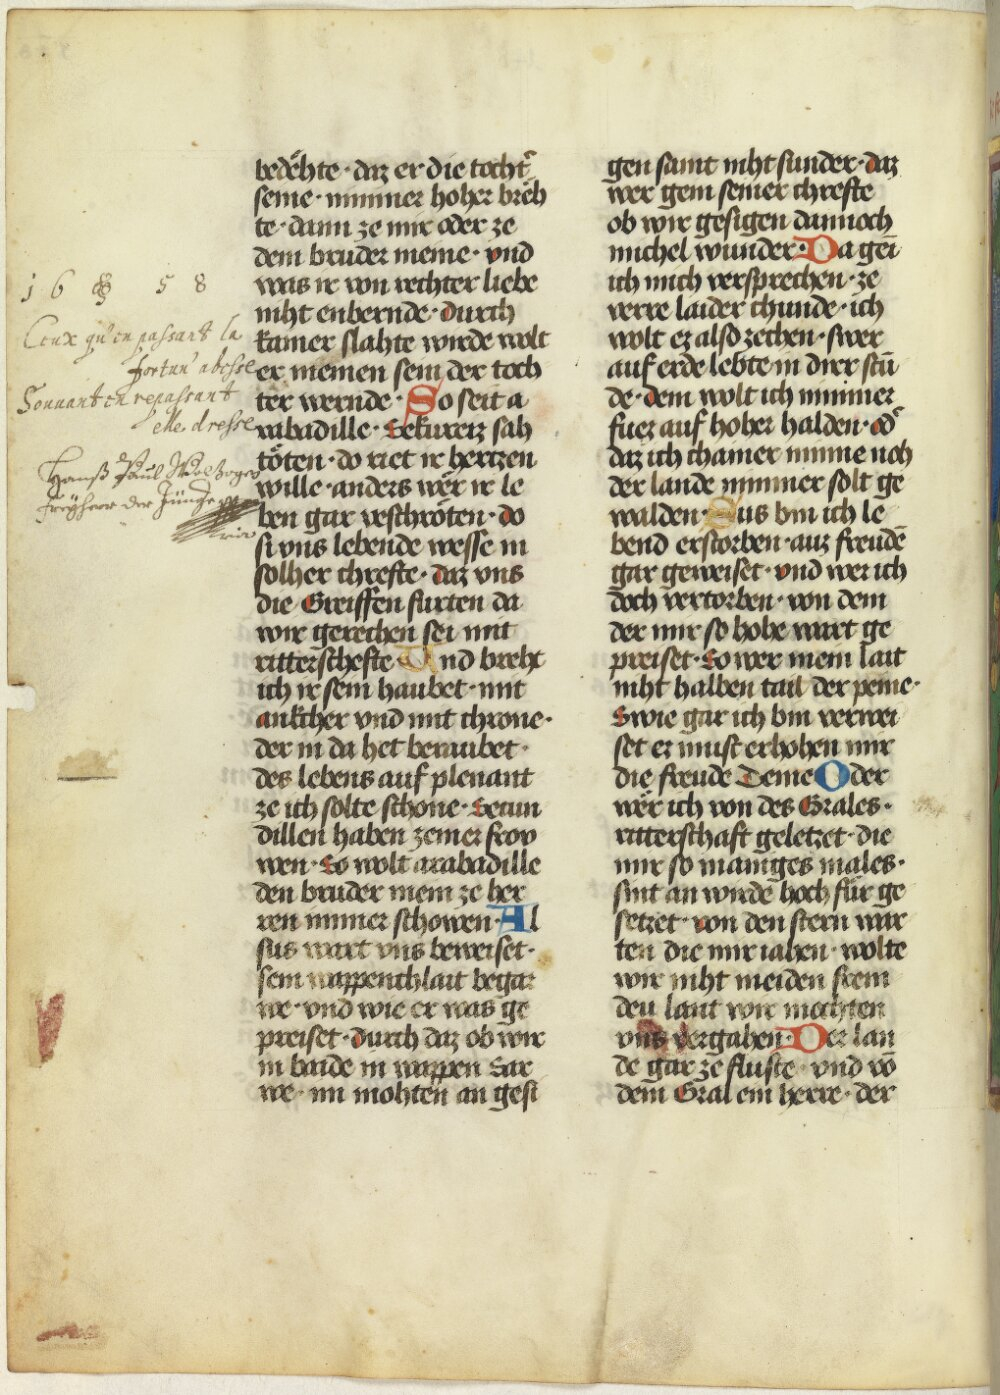 bedëhte · daz er die tocht᷑
seine · nimmer hoher bręh
te · dann ze mir oder ze
dem bruder meine · vnd
was ir von rechter liebe
niht enbernde · durch
kainer slahte wirde wolt
er meinen sein der toch
ter wernde · So seit a
rabadille · Sekureiz sah
töten · do riet ir hertzen
wille · anders wër ir le
ben gar verschröten · do
si vns lebende wesse in
solher chrefte · daz vns
die Greiffen fürten da
wir gerechen sei mit
ritterschefte Und breht
ich ir sein haubet · mit
ankcher vnd mit chrone ·
der in da het beraubet ·
des lebens auf plenant
ze ich solte schone · Secun
dillen haben zeiner frow
wen · So wolt arabadille
den bruder mein ze her
ren immer schowen · Al
sus wart vns beweiset ·
sein wappenchlait begar
we · vnd wie er was ge
preiset · durch daz ob wir
in baide in wappen Sar
we · im mohten an gesi
gen samt niht sunder · daz
wer gein seiner chrefte
ob wir gesigen dannoch
michel wunder · Da geı̄
ich mich versprechen · ze
verre laider chunde · ich
wolt ez also zechen · swer
auf erde lebte in dirr stū
de · dem wolt ich nimmer
fuez auf hober halden · od᷑
daz ich chainer minne noch
der lande nimmer solt ge
walden · Sus bin ich le
bend erstorben · auz freudē
gar geweiset · vnd wer ich
doch vertorben · von dem
der mir so hohe wart ge
preiset · So wer mein lait
niht halben tail der peine ·
Swie gar ich bin verwei
set er must erhohen mir
die freude Deine Oder
wër ich von des Grales ·
ritterschaft geletzet · die
mir so maniges males ·
sint an wirde hoch für ge
setzet · von den stern war
ten die mir iahen · wolte
wir niht meiden sein
deu lant wir mechten
vns vergahen · Der lan
de gar ze fluste · vnd vō
dem Gral ein herre · der
16 58
Ceux qu'en passant la
fortun' abesse
Souuant en repassant
elle dresse
Hanß Paul Wolzogen
Freÿherr der Jünger